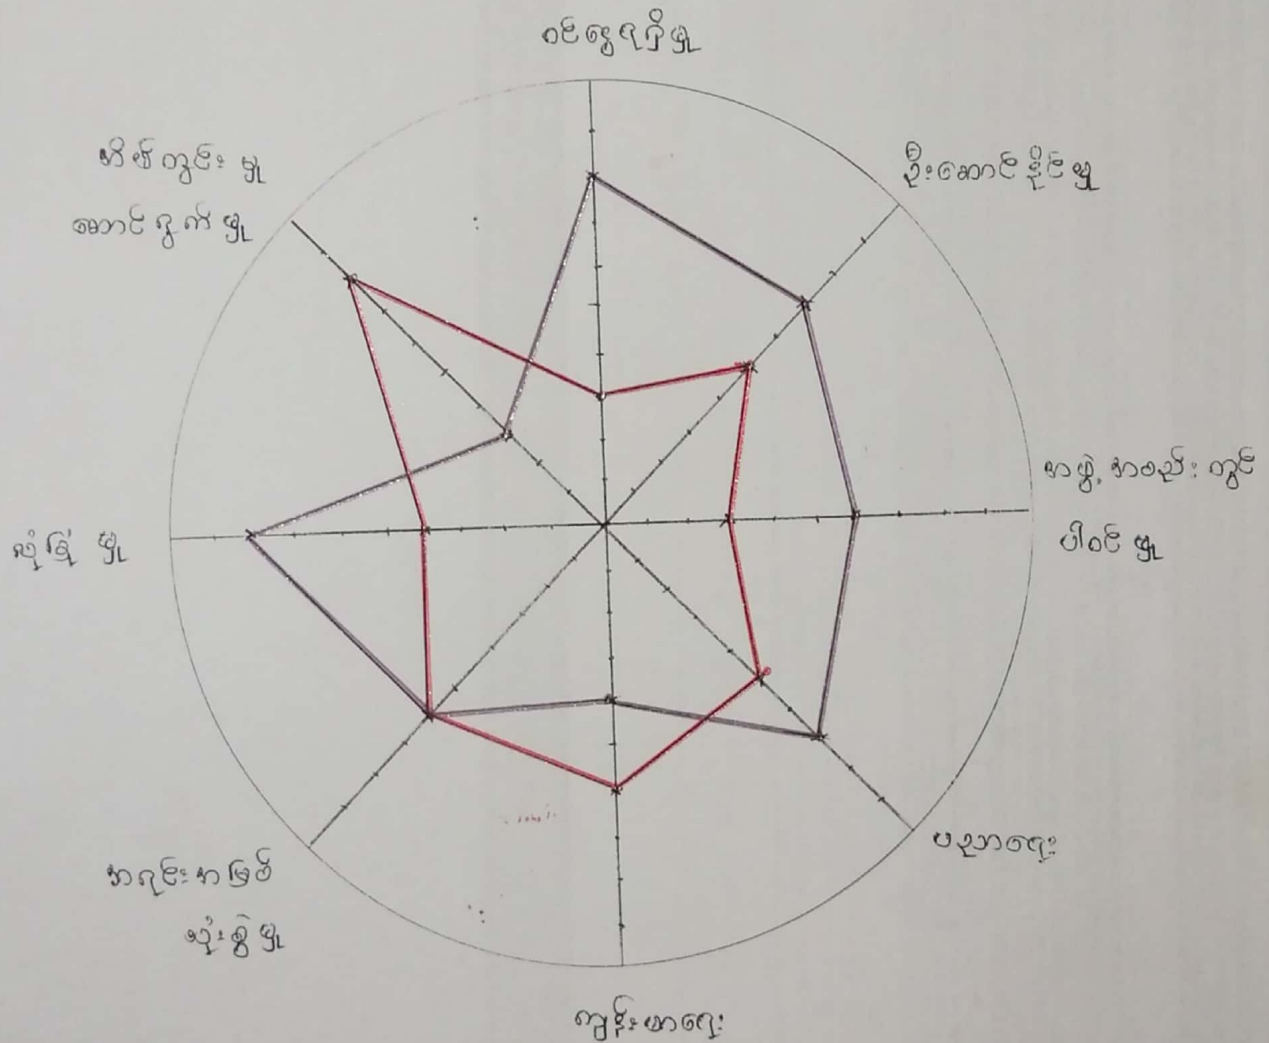 ဝင်ငွေရရှိမှု
ဦးဆောင်နိုင်မှု
အဖွဲ့အစည်းတွင်
ပါဝင်မှု
ပညာရေး
ကျန်းမာရေး
အရင်းအမြစ်
သုံးစွဲမှု
လုံခြုံမှု
အိမ်တွင်းမှု
ဆောင်ရွက်မှု